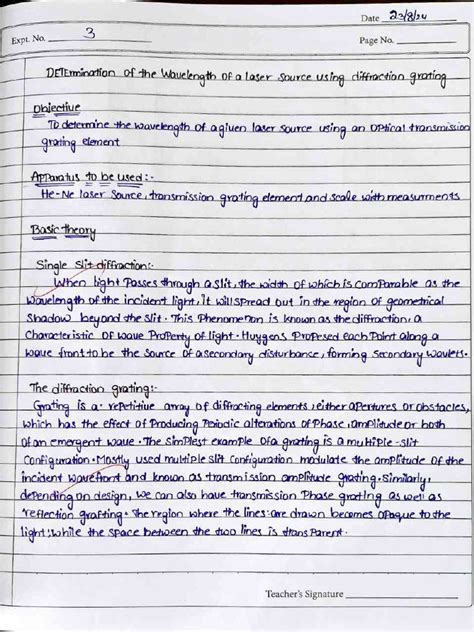 Date 23/8/24
Expt. No. 3
Page No.
DETErmination of the Wavelength of a laser source using diffraction grating
Objective
To determine the wavelength of a given laser source using an optical transmission
grating element
Apparatus to be used:-
He-Ne laser source, transmission grating element and scale with measurments
Basic theory
Single slit diffraction:-
When light passes through a slit, the width of which is comparable as the
wavelength of the incident light, it will spread out in the region of geometrical
shadow beyond the slit. This Phenomenon is known as the diffraction, a
characteristic of wave Property of light. Huygens Proposed each Point along a
wave front to be the source of a secondary disturbance, forming secondary wavelets.
The diffraction grating:-
Grating is a repetitive array of diffracting elements, either apertures or obstacles,
which has the effect of Producing Periodic alterations of Phase, amplitude or both
of an emergent wave. The simplest example of a grating is a multiple-slit
configuration. Mostly used multiple slit configuration modulate the amplitude of the
incident wavefront and known as transmission amplitude grating. Similarly,
depending on design, we can also have transmission Phase grating as well as
reflection grafting. The region where the lines are drawn becomes opaque to the
light, while the space between the two lines is transparent.
Teacher's Signature